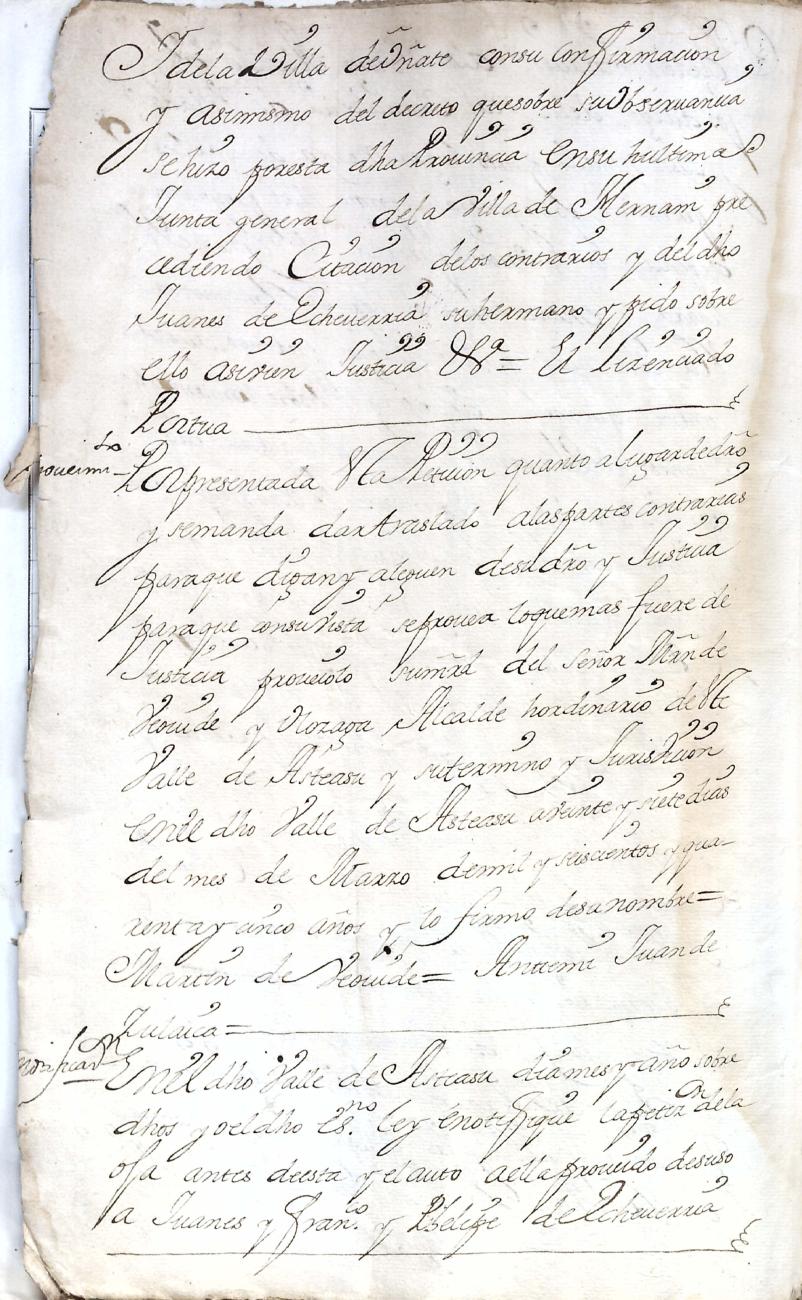 I dela Villa de Oñate consu confirmacion
y asimismo del decreto quesobre su Observancia
se hizo poresta dha Provincia Ensu hultima
Junta general dela Villa de Hernani pre
cediendo Citacion delos contrarios y del dho
Juanes de Echeverria su hermano y pido sobre
ello asi vien Justicia &ª = El Lizenciado
Portua
Por presentada esta Peticion quanto a lugar de dro̅
y semanda dar traslado alas partes contrarias
paraque digan y aleguen desu dro̅ y Justicia
paraque consu Vista seprovea loquemas fuere de
Justicia proveiolo su mrd del señor Mrn̅ de
y Olozaga Alcalde hordinario de este
Valle de Asteasu y sutermino y Jurisdicion
Enel dho Valle de Asteasu a veinte y siete dias
del mes de Marzo demil y seiscientos y qua-
renta y cinco años y lo firmo desu nombre =
Martin de = Antemi Juan de
Zulaica =
Enel dho Valle de Asteasu dia mes y año sobre
dhos yo el dho Es.no ley E notifique la petizon dela
oja antes desta y el auto aella proveido desuso
a Juanes y Fran.co y Phelipe de Echeverria